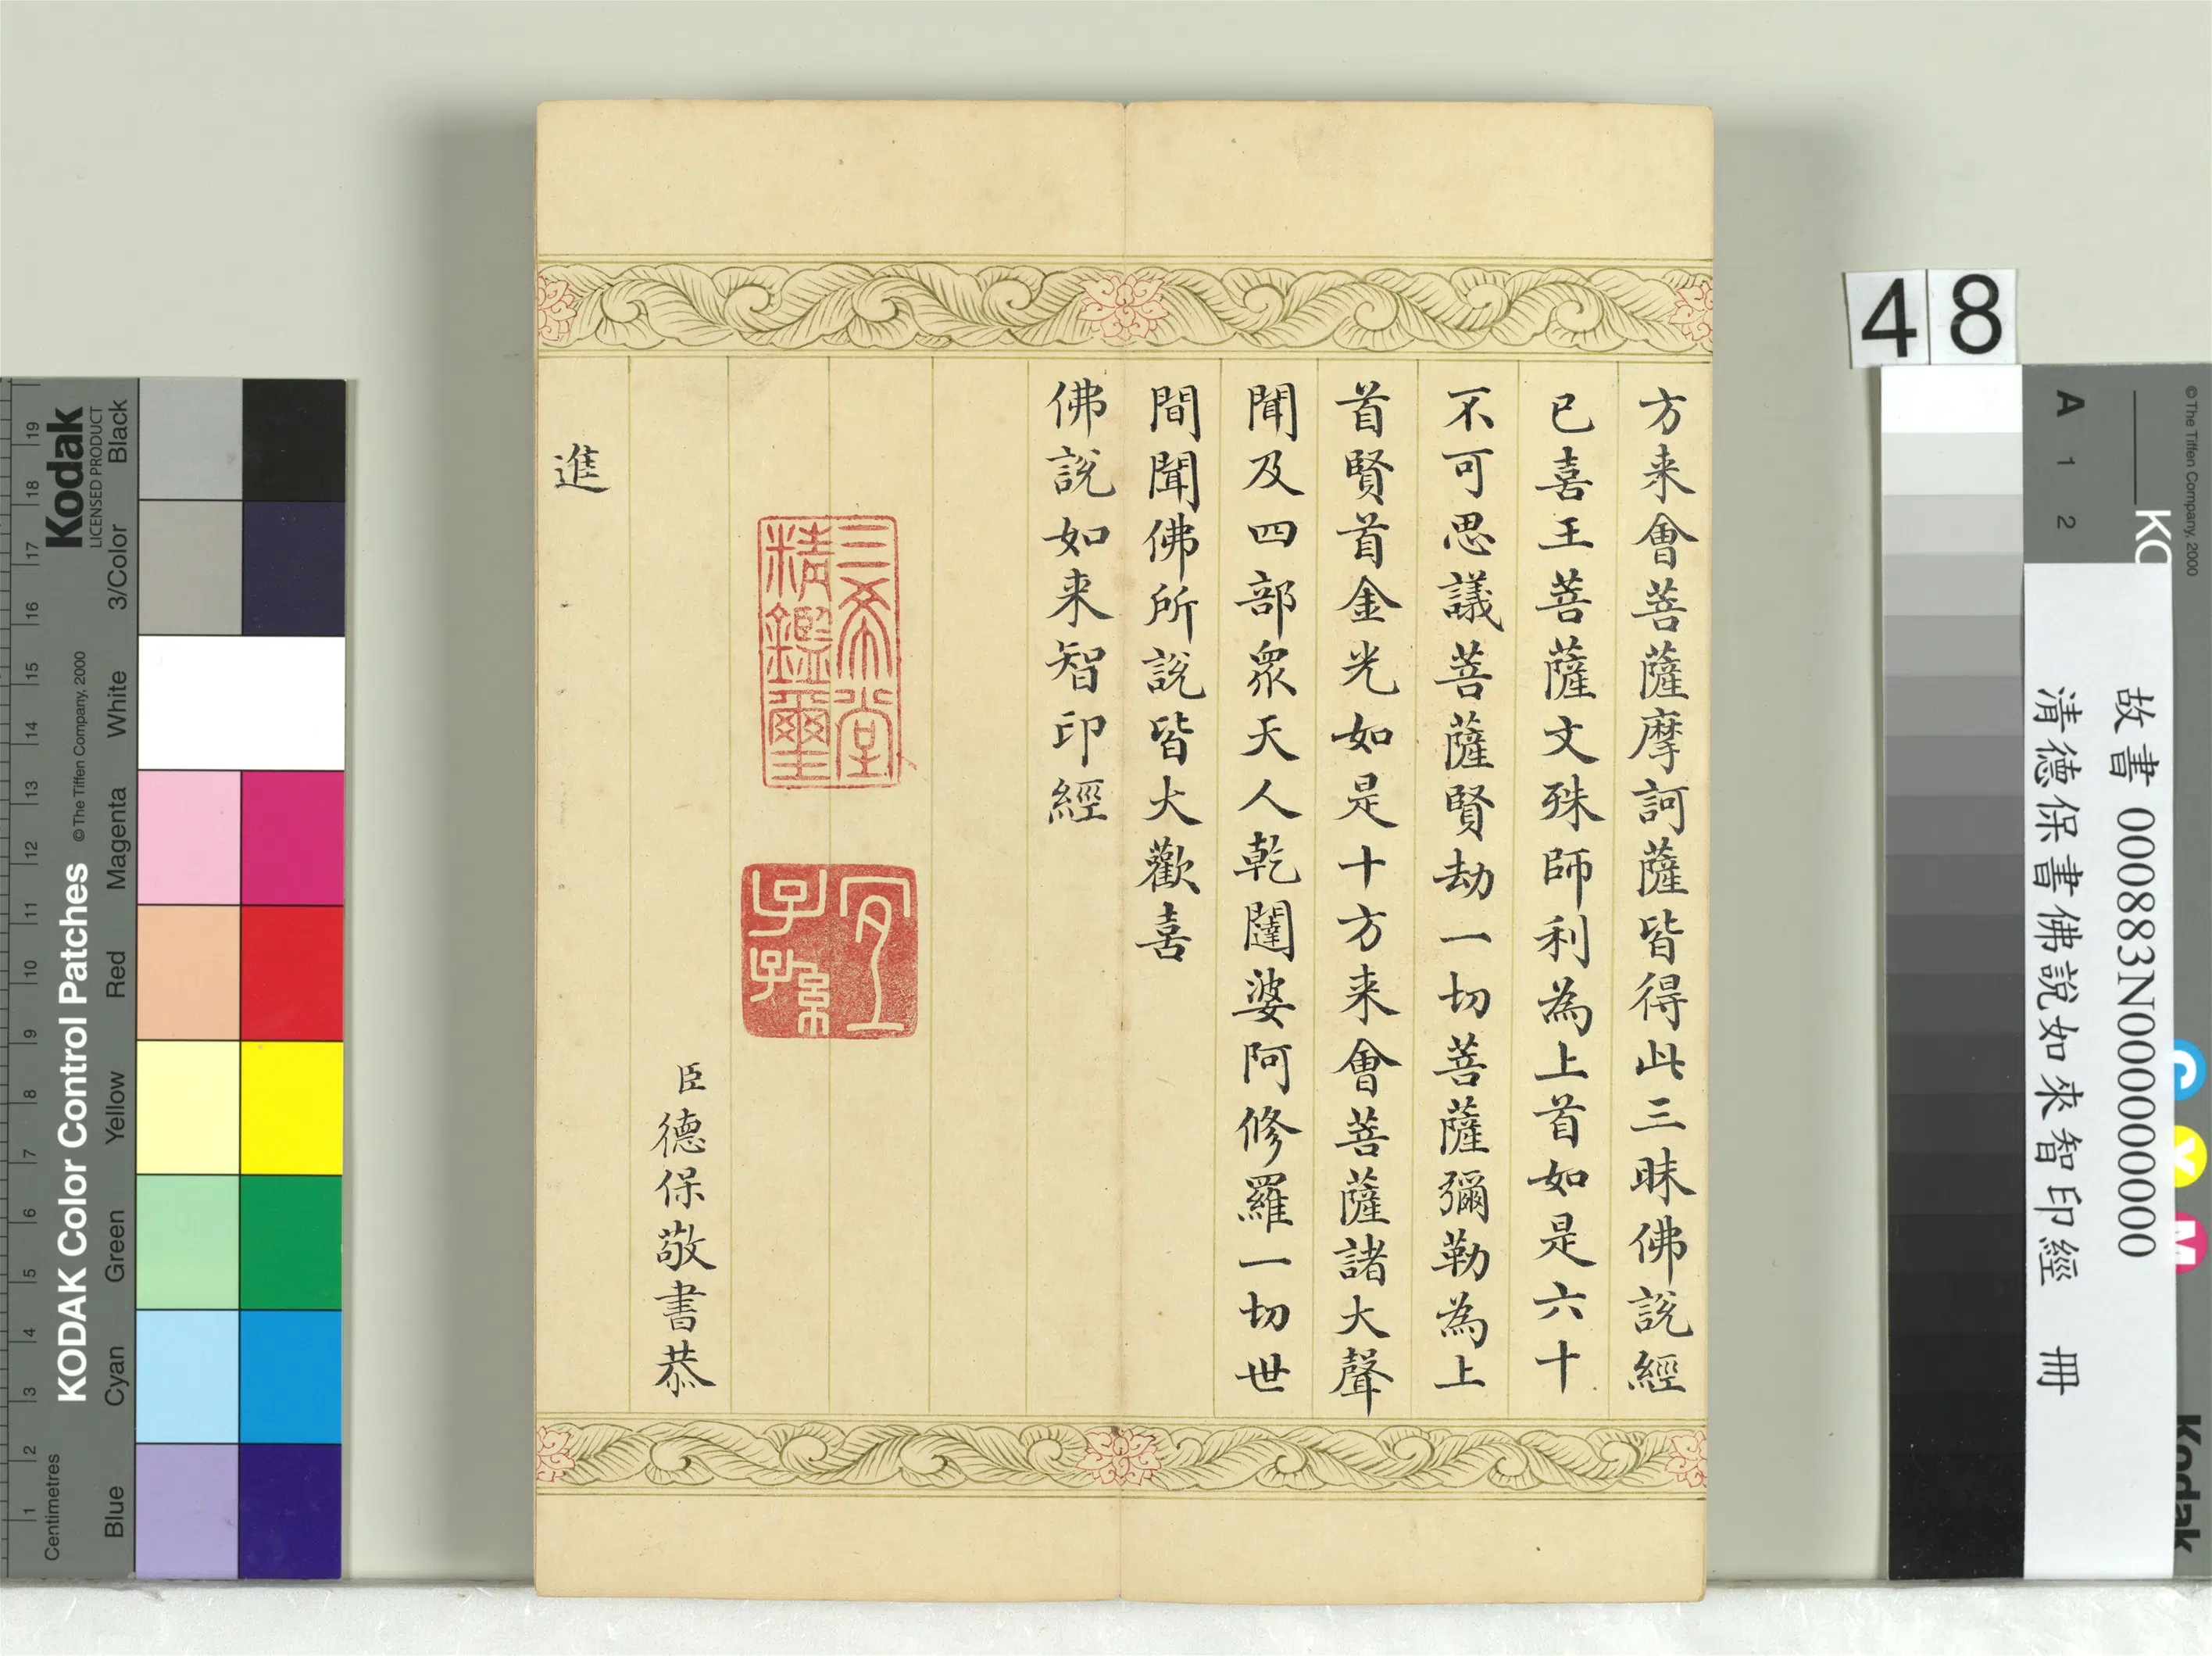 方来會菩薩摩訶薩皆得此三昧佛説經
已喜王菩薩文殊師利為上首如是六十
不可思議菩薩賢劫一切菩薩彌勒為上
首賢首金光如是十方来會菩薩諸大聲
聞及四部眾天人乾闥婆阿修羅一切世
間聞佛所説皆大歡喜
佛説如来智印經
三希堂
精鑑璽
宜
子孫
臣德保敬書恭
進
48
故書 000883N000000000
清德保書佛說如來智印經 冊
KODAK Color Control Patches
© The Tiffen Company, 2000
Kodak
LICENSED PRODUCT
Centimetres
1 2 3 4 5 6 7 8 9 10 11 12 13 14 15 16 17 18 19
Blue Cyan Green Yellow Red Magenta White 3/Color Black
A 1 2
© The Tiffen Company, 2000
C Y M
Kodak